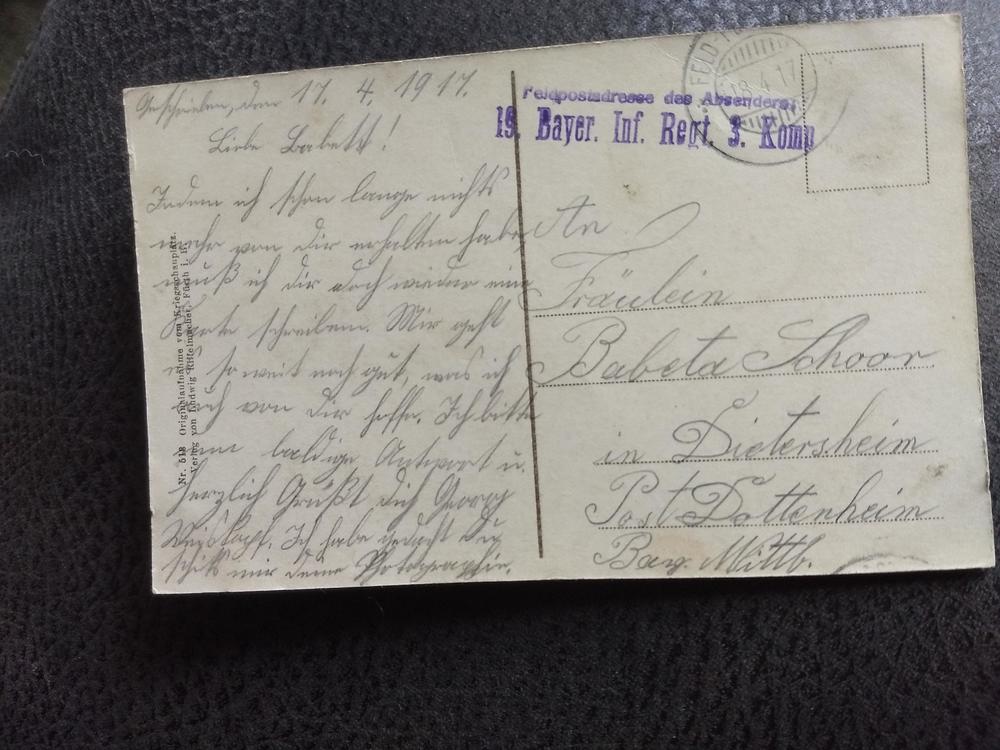 Geschrieben, den 17. 4. 1917.
Liebe Babett!
Indem ich schon lange nichts
mehr von Dir erhalten habe,
muß ich dir doch wieder eine
Karte schreiben. Mir geht
es so weit noch gut, was ich
auch von Dir hoffe. Ich bitte
um baldige Antwort u.
herzlich Grüßt dich Georg
Weiskopf. Ich habe gedacht Du
schikst mir deine Photographie.
Nr. 518 Originalaufnahme vom Kriegsschauplatz.
Verlag von Ludwig Riffelmacher, Fürth i. B.
FELD-
18.4.17
Feldpostadresse des Absenders:
19. Bayer. Inf. Regt. 3. Komp
An
Fräulein
Babeta Schoor
in Dietersheim
Post Dottenheim
Bay. Mittb.